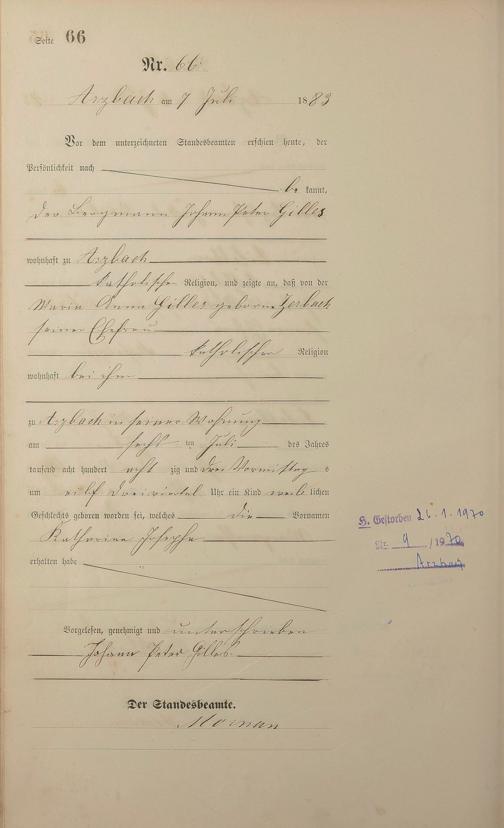 Seite 66
Nr. 66
Arzbach am 7 Juli 1883
Vor dem unterzeichneten Standesbeamten erschien heute, der
Persönlichkeit nach
be kannt,
der Bergmann Johann Peter Gilles
wohnhaft zu Arzbach
katholischer Religion, und zeigte an, daß von der
Maria Anna Gilles geborne Zerbach
seiner Ehefrau
katholischer Religion
wohnhaft bei ihm
zu Arzbach in seiner Wohnung
am sechs ten Juli des Jahres
tausend acht hundert acht zig und drei Vormittag s
um eilf dreiviertel Uhr ein Kind weib lichen
Geschlechts geboren worden sei, welches die Vornamen
Katharina Josepha
erhalten habe
Vorgelesen, genehmigt und unterschrieben
Johann Peter Gilles
Der Standesbeamte.
Gestorben 26.1.1970
Nr. 9 /1970
Arzbach